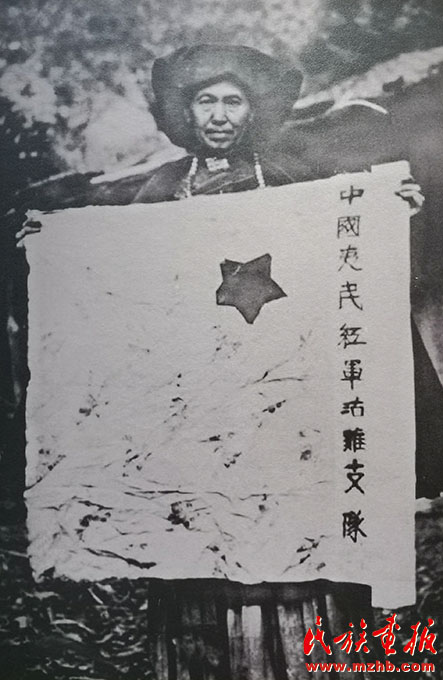 中國夷民紅軍沽雞支隊
民族画报
www.mzhb.com